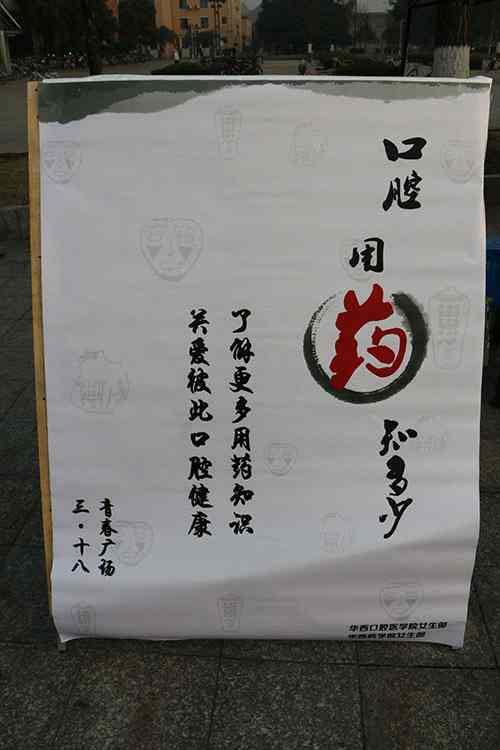 口腔
用
药
知多少
了解更多用药知识
关爱彼此口腔健康
青春广场
三·十八
华西口腔医学院女生部
华西药学院女生部